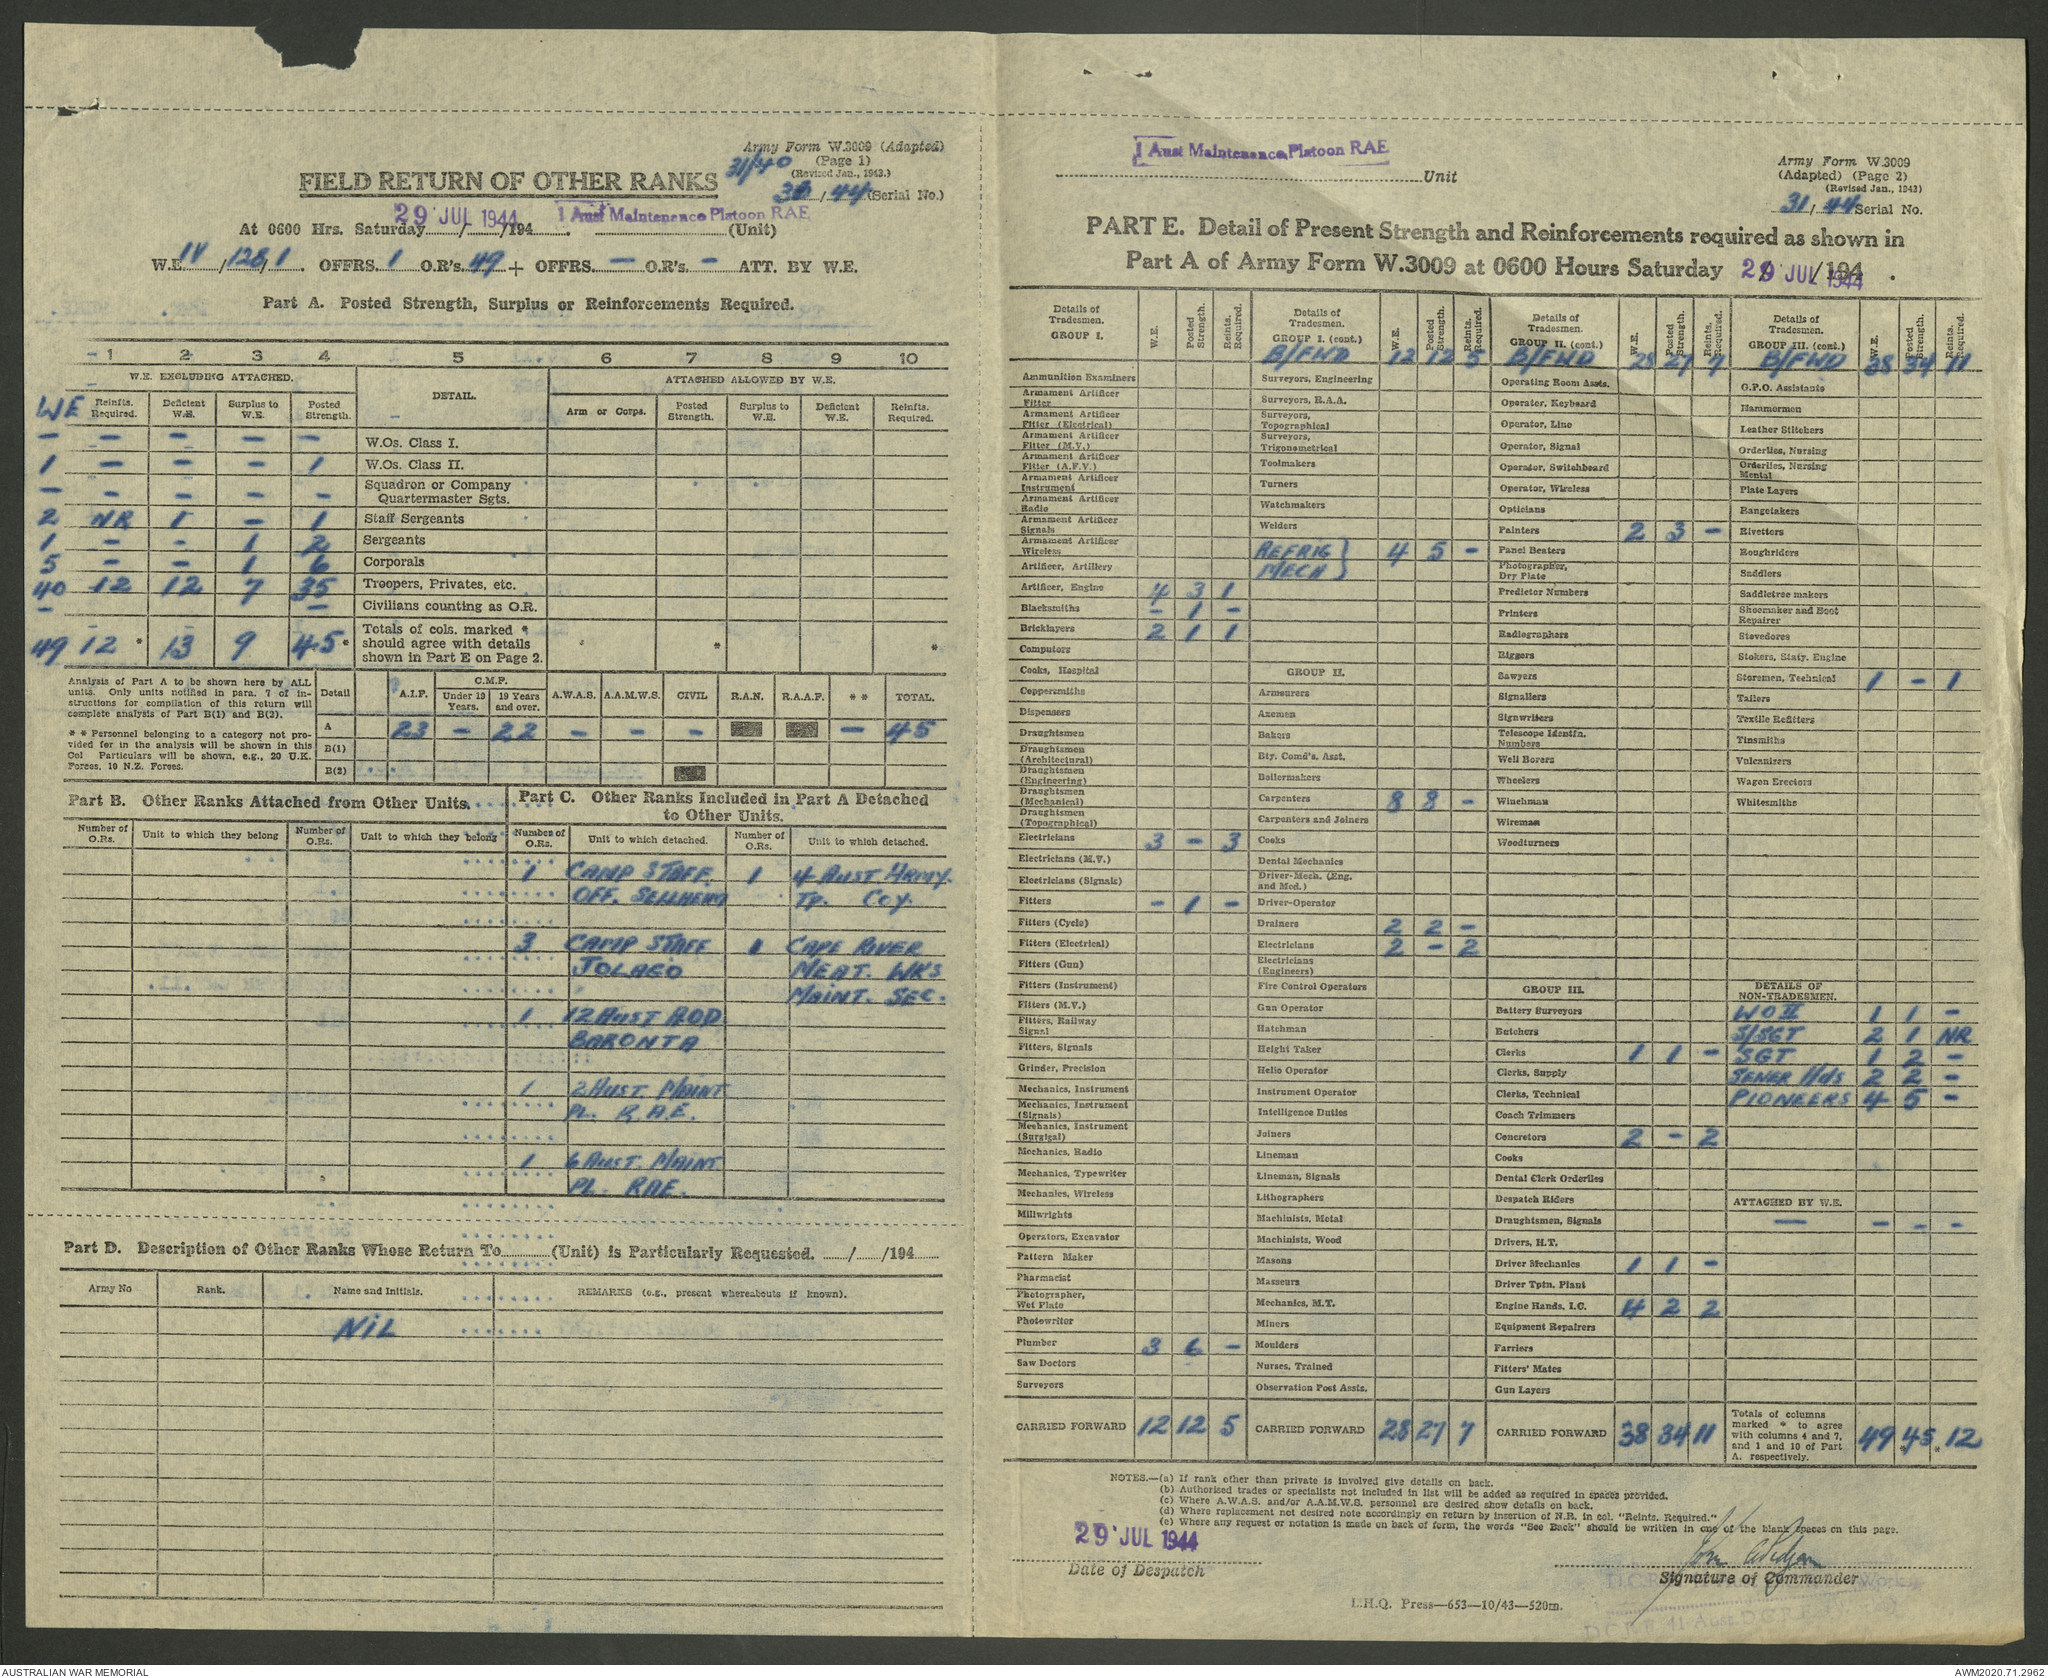 Army Form W.3009 (Adapted)
(Page 1)
(Revised Jan., 1943.)
31/40
/ 44 (Serial No.)
FIELD RETURN OF OTHER RANKS
At 0600 Hrs. Saturday 29 JUL 1944 /194 . 1 Aust Maintenance Platoon RAE (Unit)
W.E. IV /128/1. OFFRS. 1 O.R's. 49 + OFFRS. – O.R's. – ATT. BY W.E.
Part A. Posted Strength, Surplus or Reinforcements Required.
1 2 3 4 5 6 7 8 9 10
W.E. EXCLUDING ATTACHED. DETAIL. ATTACHED ALLOWED BY W.E.
WE Reinfts. Required. Deficient W.E. Surplus to W.E. Posted Strength. Arm or Corps. Posted Strength. Surplus to W.E. Deficient W.E. Reinfts. Required.
– – – – – W.Os. Class I.
1 – – – 1 W.Os. Class II.
– – – – – Squadron or Company Quartermaster Sgts.
2 NR 1 – 1 Staff Sergeants
1 – – 1 2 Sergeants
5 – – 1 6 Corporals
40 12 12 7 35 Troopers, Privates, etc.
– – Civilians counting as O.R.
49 12 * 13 9 45 * Totals of cols. marked * should agree with details shown in Part E on Page 2. * *
Analysis of Part A to be shown here by ALL units. Only units notified in para. 7 of instructions for compilation of this return will complete analysis of Part B(1) and B(2).
* * Personnel belonging to a category not provided for in the analysis will be shown in this Col Particulars will be shown, e.g., 20 U.K. Forces, 10 N.Z. Forces.
Detail A.I.F. C.M.F. Under 19 Years. 19 Years and over. A.W.A.S. A.A.M.W.S. CIVIL R.A.N. R.A.A.F. * * TOTAL.
A 23 – 22 – – – – 45
B(1)
B(2)
Part B. Other Ranks Attached from Other Units.
Number of O.Rs. Unit to which they belong Number of O.Rs. Unit to which they belong
Part C. Other Ranks Included in Part A Detached to Other Units.
Number of O.Rs. Unit to which detached. Number of O.Rs. Unit to which detached.
1 CAMP STAFF 1 4 AUST ARMY.
OFF. SELLHEIM TP. COY.
3 CAMP STAFF 1 CAPE RIVER
JOLAGO MEAT. WKS
MAINT. SEC.
1 12 AUST AOD
BARONTA
1 2 AUST MAINT
PL. R.A.E.
1 6 AUST. MAINT
PL. RAE.
Part D. Description of Other Ranks Whose Return To (Unit) is Particularly Requested. / /194
Army No Rank. Name and Initials. REMARKS (e.g., present whereabouts if known).
NIL
1 Aust Maintenance Platoon RAE
Unit
Army Form W.3009
(Adapted) (Page 2)
(Revised Jan., 1943)
31/ 44 Serial No.
PART E. Detail of Present Strength and Reinforcements required as shown in
Part A of Army Form W.3009 at 0600 Hours Saturday 29 JUL 1944 /194 .
Details of Tradesmen. GROUP I. W.E. Posted Strength. Reints. Required.
Ammunition Examiners
Armament Artificer Fitter
Armament Artificer Fitter (Electrical)
Armament Artificer Fitter (M.V.)
Armament Artificer Fitter (A.F.V.)
Armament Artificer Instrument
Armament Artificer Radio
Armament Artificer Signals
Armament Artificer Wireless
Artificer, Artillery
Artificer, Engine 4 3 1
Blacksmiths – 1 –
Bricklayers 2 1 1
Computors
Cooks, Hospital
Coppersmiths
Dispensers
Draughtsmen
Draughtsmen (Architectural)
Draughtsmen (Engineering)
Draughtsmen (Mechanical)
Draughtsmen (Topographical)
Electricians 3 – 3
Electricians (M.V.)
Electricians (Signals)
Fitters – 1 –
Fitters (Cycle)
Fitters (Electrical)
Fitters (Gun)
Fitters (Instrument)
Fitters (M.V.)
Fitters, Railway Signal
Fitters, Signals
Grinder, Precision
Mechanics, Instrument
Mechanics, Instrument (Signals)
Mechanics, Instrument (Surgical)
Mechanics, Radio
Mechanics, Typewriter
Mechanics, Wireless
Millwrights
Operators, Excavator
Pattern Maker
Pharmacist
Photographer, Wet Plate
Photowriter
Plumber 3 6 –
Saw Doctors
Surveyors
CARRIED FORWARD 12 12 5
Details of Tradesmen. GROUP I. (cont.) W.E. Posted Strength. Reints. Required.
B/FWD 12 12 5
Surveyors, Engineering
Surveyors, R.A.A.
Surveyors, Topographical
Surveyors, Trigonometrical
Toolmakers
Turners
Watchmakers
Welders
REFRIG MECH } 4 5 –
GROUP II.
Armourers
Axemen
Bakers
Bty. Comd's. Asst.
Boilermakers
Carpenters 8 8 –
Carpenters and Joiners
Cooks
Dental Mechanics
Driver-Mech. (Eng. and Med.)
Driver-Operator
Drainers 2 2 –
Electricians 2 – 2
Electricians (Engineers)
Fire Control Operators
Gun Operator
Hatchman
Height Taker
Helio Operator
Instrument Operator
Intelligence Duties
Joiners
Lineman
Lineman, Signals
Lithographers
Machinists, Metal
Machinists, Wood
Masons
Masseurs
Mechanics, M.T.
Miners
Moulders
Nurses, Trained
Observation Post Assts.
CARRIED FORWARD 28 27 7
Details of Tradesmen. GROUP II. (cont.) W.E. Posted Strength. Reints. Required.
B/FWD 28 27 7
Operating Room Assts.
Operator, Keyboard
Operator, Line
Operator, Signal
Operator, Switchboard
Operator, Wireless
Opticians
Painters 2 3 –
Panel Beaters
Photographer, Dry Plate
Predictor Numbers
Printers
Radiographers
Riggers
Sawyers
Signallers
Signwriters
Telescope Identfn. Numbers
Well Borers
Wheelers
Winchman
Wireman
Woodturners
GROUP III.
Battery Surveyors
Butchers
Clerks 1 1 –
Clerks, Supply
Clerks, Technical
Coach Trimmers
Concretors 2 – 2
Cooks
Dental Clerk Orderlies
Despatch Riders
Draughtsmen, Signals
Drivers, H.T.
Driver Mechanics 1 1 –
Driver Tptn. Plant
Engine Hands, I.C. 4 2 2
Equipment Repairers
Farriers
Fitters' Mates
Gun Layers
CARRIED FORWARD 38 34 11
Details of Tradesmen. GROUP III. (cont.) W.E. Posted Strength. Reints. Required.
B/FWD 38 34 11
G.P.O. Assistants
Hammermen
Leather Stitchers
Orderlies, Nursing
Orderlies, Nursing Mental
Plate Layers
Rangetakers
Rivetters
Roughriders
Saddlers
Saddletree makers
Shoemaker and Boot Repairer
Stevedores
Stokers, Staty. Engine
Storemen, Technical 1 – 1
Tailers
Textile Refitters
Tinsmiths
Vulcanizers
Wagon Erectors
Whitesmiths
DETAILS OF NON-TRADESMEN.
WO II 1 1 –
S/SGT 2 1 NR
SGT 1 2 –
SEWER Hds 2 2 –
PIONEERS 4 5 –
ATTACHED BY W.E.
– – – –
Totals of columns marked * to agree with columns 4 and 7, and 1 and 10 of Part A. respectively. 49 45 * 12
NOTES.—(a) If rank other than private is involved give details on back.
(b) Authorised trades or specialists not included in list will be added as required in spaces provided.
(c) Where A.W.A.S. and/or A.A.M.W.S. personnel are desired show details on back.
(d) Where replacement not desired note accordingly on return by insertion of N.R. in col. "Reints. Required."
(e) Where any request or notation is made on back of form, the words "See Back" should be written in one of the blank spaces on this page.
29 JUL 1944
Date of Despatch
Signature of Commander
L.H.Q. Press—653—10/43—520m.
AUSTRALIAN WAR MEMORIAL
AWM2020.71.2962